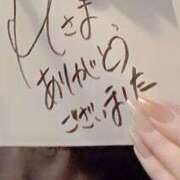 Mさま、
ありがとう
ございました